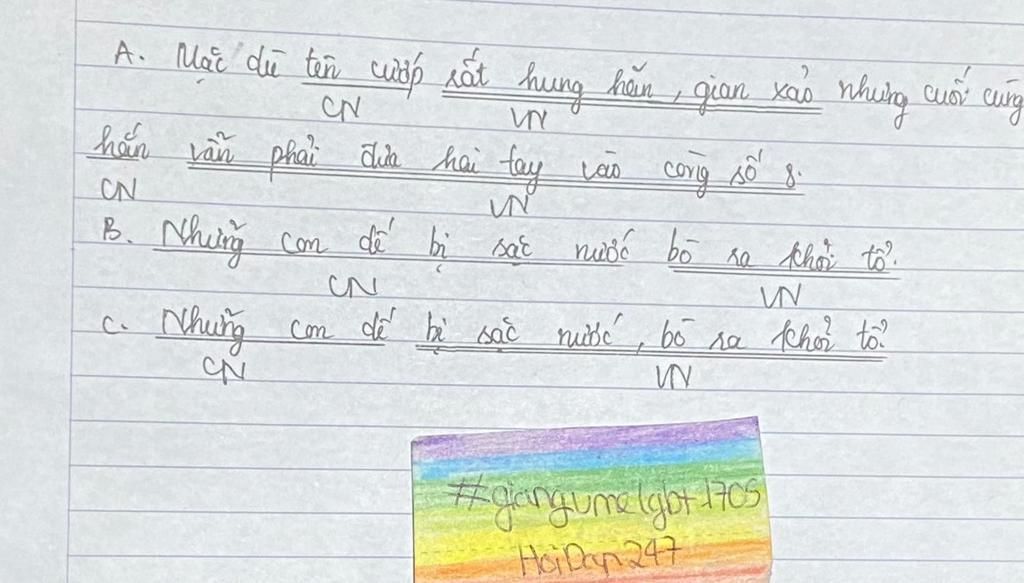 A. Mặc dù tên cướp rất hung hăn, gian xảo nhưng cuối cùng
CN VN
hắn vẫn phải đưa hai tay vào còng số 8.
CN VN
B. Những con dế bị sặc nước bò ra khỏi tổ.
CN VN
C. Những con dế bị sặc nước, bò ra khỏi tổ.
CN VN
#giangumelgbt1705
HoiDap247